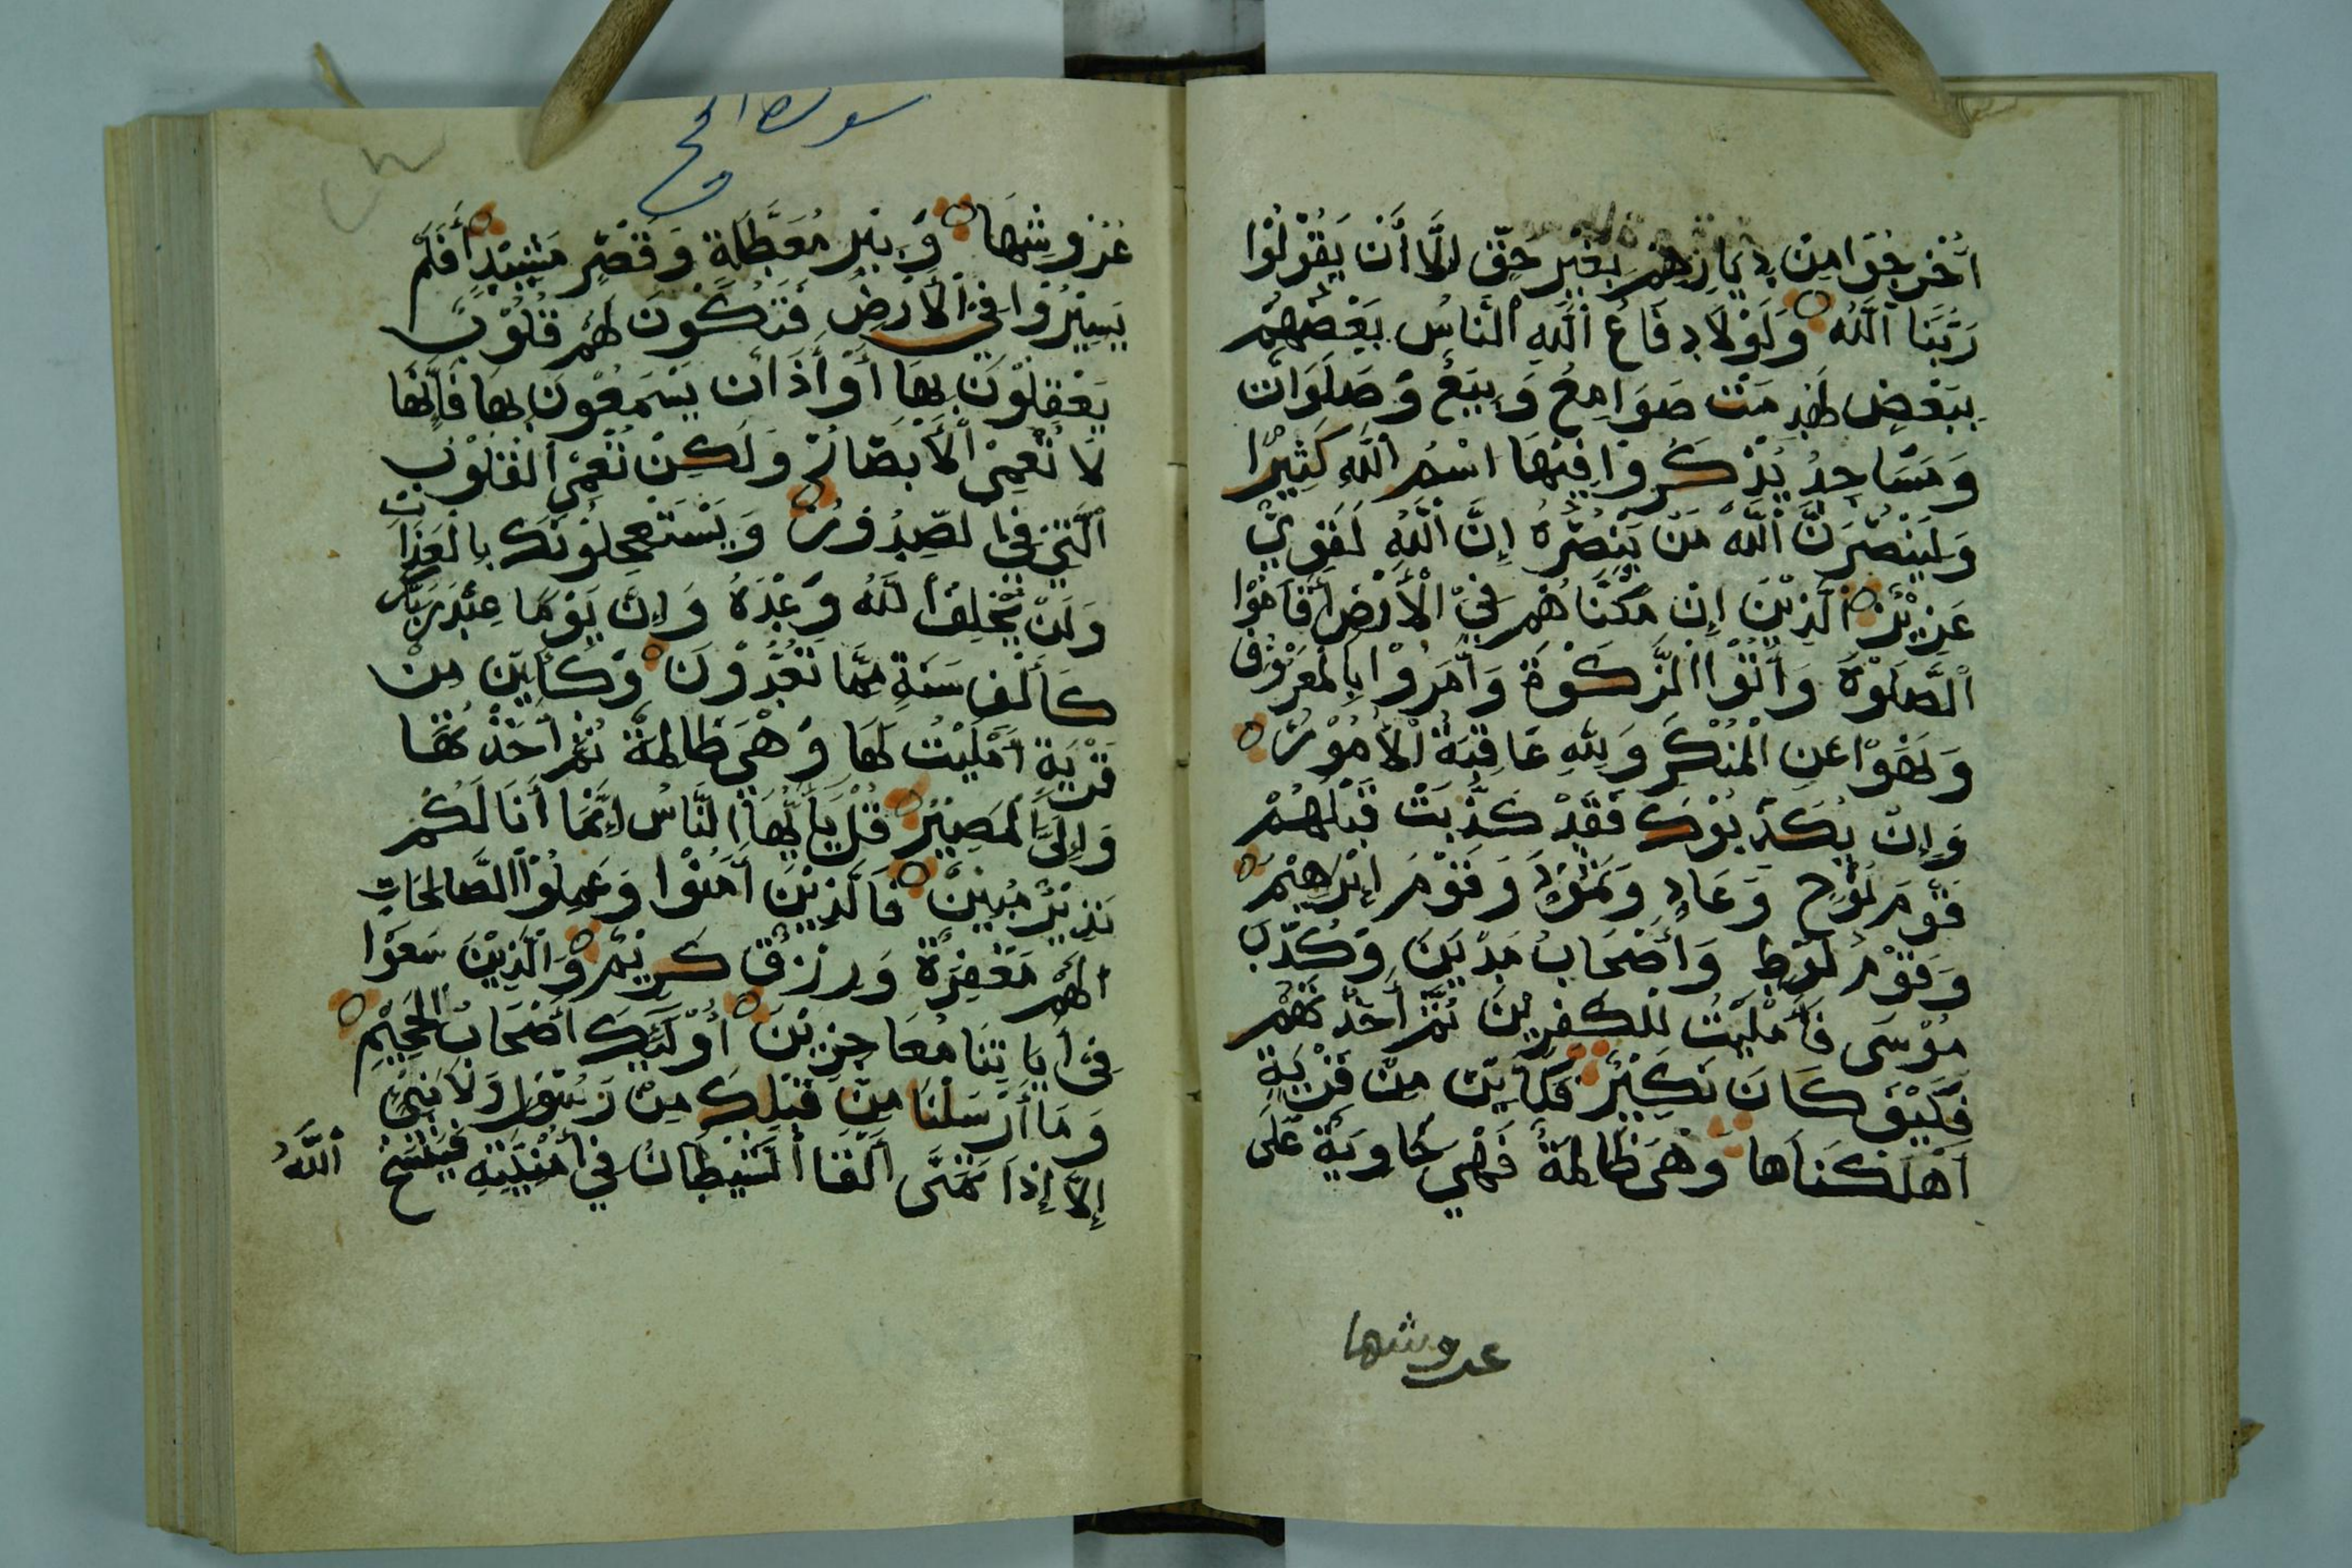 أُخْرِجُوا مِنْ دِيَارِهِمْ بِغَيْرِ حَقٍّ إِلَّا أَنْ يَقُوْلُوْا
رَبُّنَا اَللّٰهُ وَلَوْلَا دِفَاعُ اَللّٰهِ اَلنَّاسُ بَعْضَهُمْ
بِبَعْضٍ لَهُدِمَتْ صَوَامِعُ وَبِيَعٌ وَصَلَوَاتٌ
وَمَسَاجِدُ يُذْكَرُوا فِيْهَا اسْمُ اَللّٰهِ كَثِيْرًا
وَلَيَنْصُرَنَّ اَللّٰهُ مَنْ يَنْصُرُهُ إِنَّ اَللّٰهَ لَقَوِيٌّ
عَزِيْزٌ اَلَّذِيْنَ إِنْ مَكَّنَّاهُمْ فِيْ الْأَرْضِ أَقَامُوْا
اَلصَّلَوٰةَ وَأَتَوُا الزَّكَوٰةَ وَأَمَرُوْا بِالْمَعْرُوْفِ
وَنَهَوْا عَنِ الْمُنْكَرِ وَلِلّٰهِ عَاقِبَةُ الْأُمُوْرِ
وَإِنْ يُكَذِّبُوْكَ فَقَدْ كَذَّبَتْ قَبْلَهُمْ
قَوْمُ نُوْحٍ وَعَادٍ وَثَمُوْدَ وَقَوْمُ إِبْرٰهِيْمَ
وَقَوْمُ لُوْطٍ وَأَصْحَابُ مَدْيَنَ وَكُذِّبَ
مُوْسَى فَأَمْلَيْتُ لِلْكٰفِرِيْنَ ثُمَّ أَخَذْتُهُمْ
فَكَيْفَ كَانَ نَكِيْرِ فَكَأَيِّنْ مِنْ قَرْيَةٍ
أَهْلَكْنَاهَا وَهِيَ ظَالِمَةٌ فَهْيَ خَاوِيَةٌ عَلَى
عروشها
سورة الحج
عُرُوشِهَا وَبِيْرٍ مُعَطَّلَةٍ وَقَصْرٍ مَشِيْدٍ أَفَلَمْ
يَسِيْرُوْا فِيْ الْأَرْضِ فَتَكُوْنَ لَهُمْ قُلُوْبٌ
يَعْقِلُوْنَ بِهَا أَوْ أَذَانٌ يَسْمَعُوْنَ بِهَا فَإِنَّهَا
لَا تَعْمَى الْأَبْصَارُ وَلَكِنْ تَعْمَى الْقُلُوْبُ
اَلَّتِيْ فِي الصُّدُوْرِ وَيَسْتَعْجِلُوْنَكَ بِالْعَذَابِ
وَلَنْ يُخْلِفَ اَللّٰهُ وَعْدَهُ وَإِنَّ يَوْمًا عِنْدَ رَبِّكَ
كَأَلْفِ سَنَةٍ مِمَّا تَعُدُّوْنَ وَكَأَيِّنْ مِنْ
قَرْيَةٍ أَمْلَيْتُ لَهَا وَهْيَ ظَالِمَةٌ ثُمَّ أَخَذْتُهَا
وَإِلَيَّ الْمَصِيْرُ قُلْ يَأَيُّهَا النَّاسُ إِنَّمَا أَنَا لَكُمْ
نَذِيْرٌ مُبِيْنٌ فَالَّذِيْنَ أَمَنُوْا وَعَمِلُوْا الصَّالِحَاتِ
لَهُمْ مَغْفِرَةٌ وَرِزْقٌ كَرِيْمٌ وَالَّذِيْنَ سَعَوْا
فِيْ أَيَاتِنَا مُعَاجِزِيْنَ أُوْلٰئِكَ أَصْحَابُ الْجَحِيْمِ
وَمَا أَرْسَلْنَا مِنْ قَبْلِكَ مِنْ رَسُوْلٍ وَلَا نَبِيٍّ
إِلَّا إِذَا تَمَنَّى أَلْقَا الشَّيْطَانُ فِيْ أُمْنِيَّتِهِ فَيَنْسَخُ اَللّٰهُ